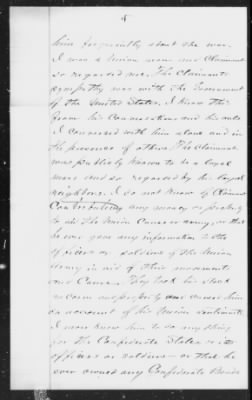 5
him frequently about the war.
I was a Union man and Claimant
so regarded me. The Claimants
sympathy was with the Government
of the United States. I know this
from his Conversations and his acts
I conversed with him alone and in
the presence of others. The Claimant
was publicly known to be a loyal
man and so regarded by his loyal
neighbors. I do not know of Claimant
Contributing any money or property
to aid the Union Cause or army, or that
he ever gave any information to the
officers or soldiers of the Union
Army in aid of their movements
and Cause. They took his stock
or corn and property and cursed him
on account of his Union sentiments
I never knew him to do any thing
for the Confederate States or its
officers or soldiers — or that he
ever owned any Confederate Bonds